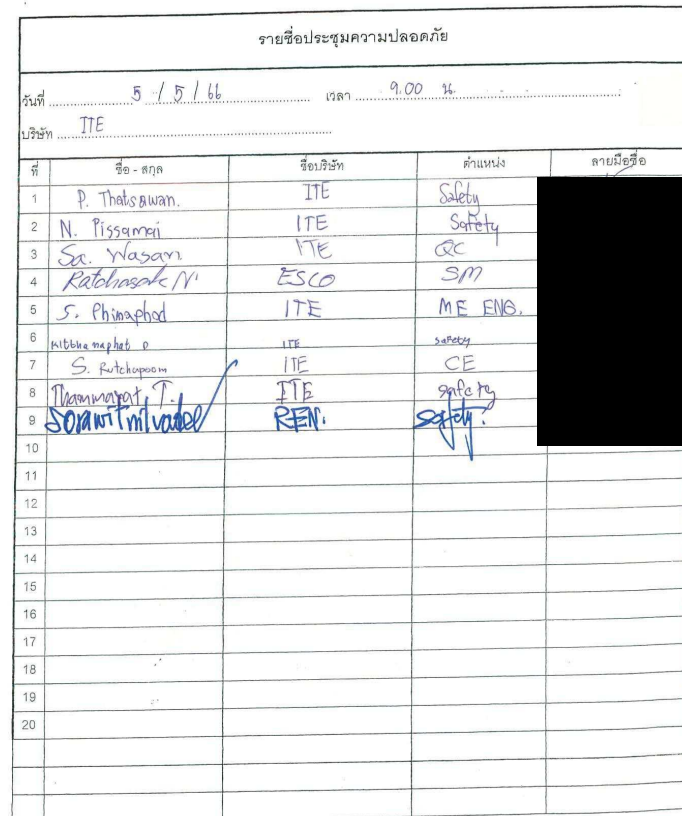 รายชื่อประชุมความปลอดภัย
วันที่ 5 / 5 / 66 เวลา 9.00 น.
บริษัท ITE
ที่ ชื่อ - สกุล ชื่อบริษัท ตำแหน่ง ลายมือชื่อ
1 P. Thatsawan. ITE Safety
2 N. Pissamai ITE Safety
3 Sa. Wasan. ITE QC
4 Ratchasak N. ESCO SM
5 S. Phinaphod ITE ME ENG.
6 Kitthanaphat P ITE safety
7 S. Rutchapoom ITE CE
8 Thammarat T. ITE safety
9 Sorawit REN. safety.
10
11
12
13
14
15
16
17
18
19
20